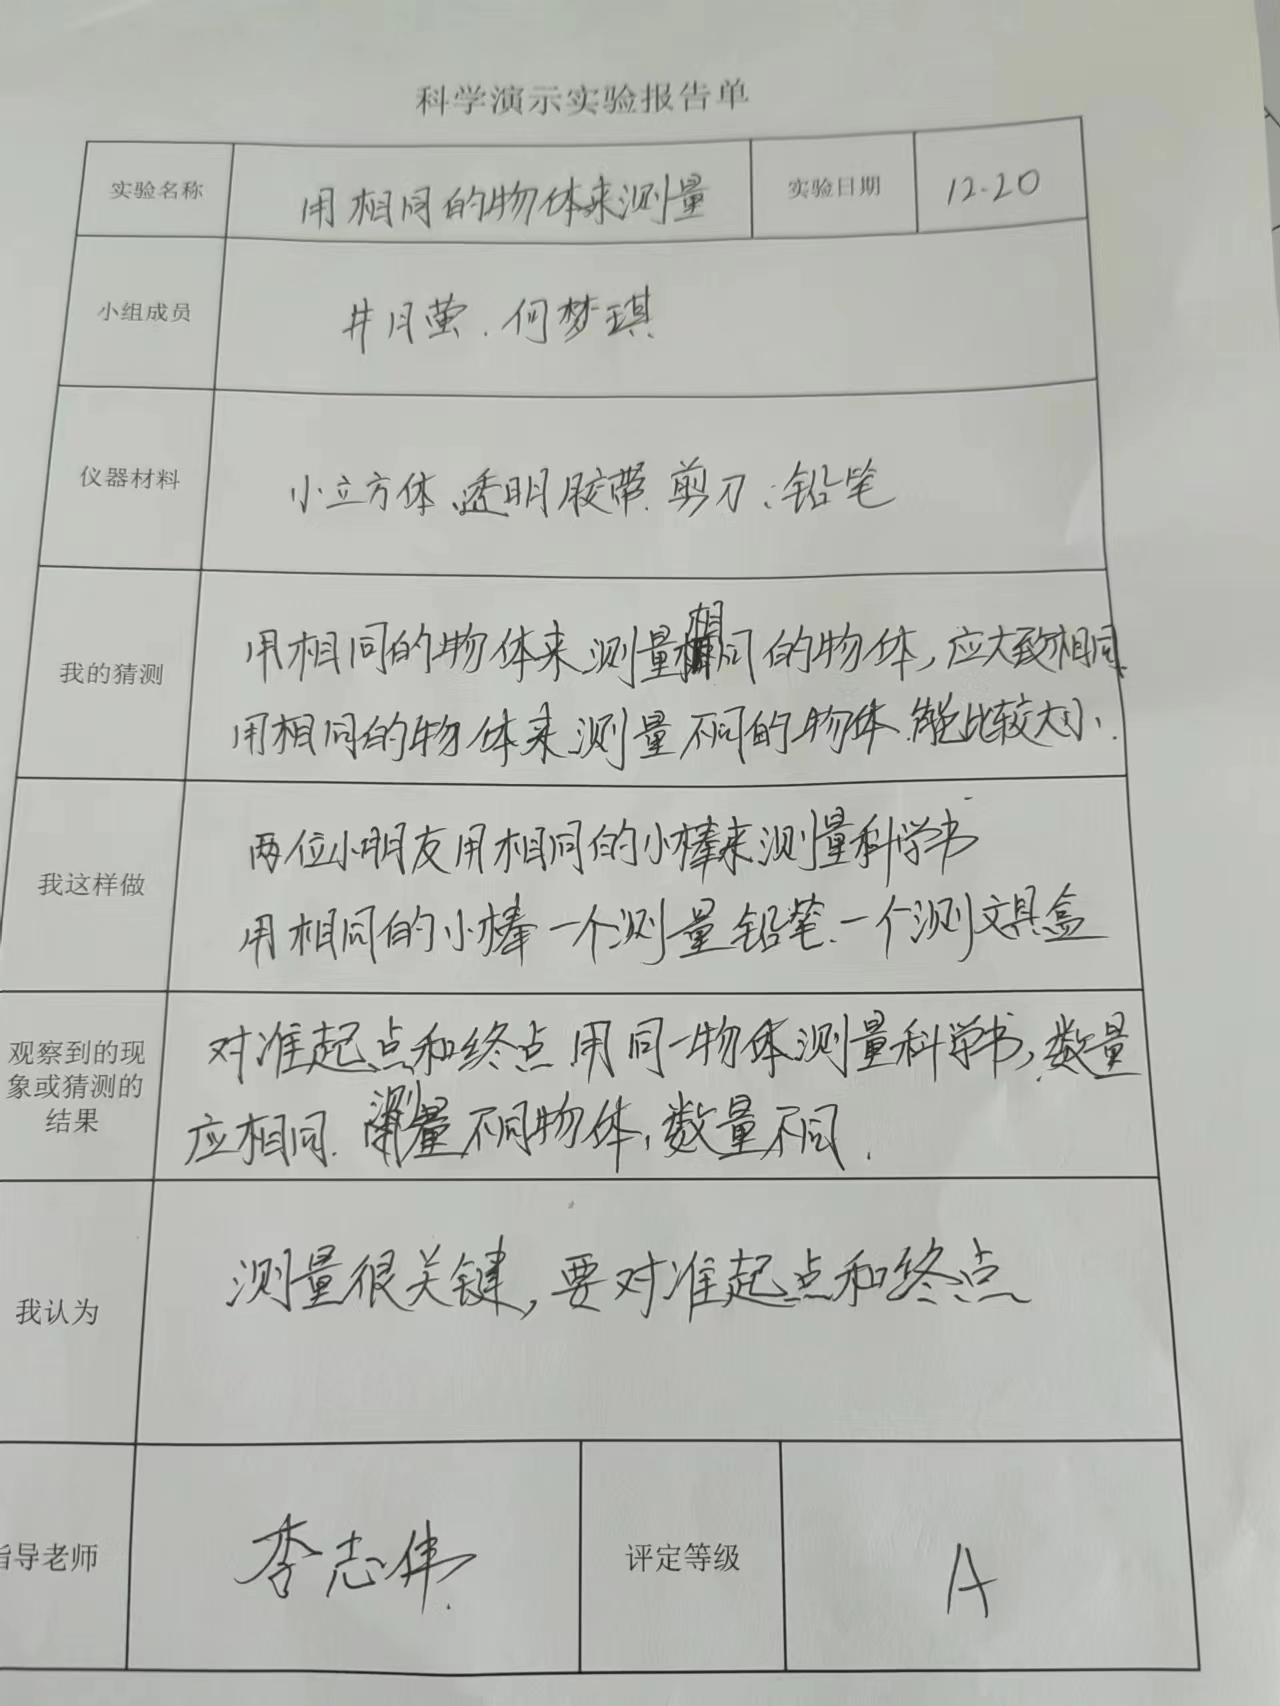 科学演示实验报告单
实验名称 用相同的物体来测量 实验日期 12.20
小组成员 井月萤.何梦琪
仪器材料 小立方体、透明胶带、剪刀、铅笔
用相同的物体来测量相同的物体,应大致相同.
我的猜测
用相同的物体来测量不同的物体.能比较大小.
两位小朋友用相同的小棒来测量科学书
我这样做
用相同的小棒一个测量铅笔.一个测文具盒
观察到的现
象或猜测的
结果
对准起点和终点用同一物体测量科学书,数量
应相同.测量不同物体,数量不同.
我认为 测量很关键,要对准起点和终点
指导老师 李志伟 评定等级 A